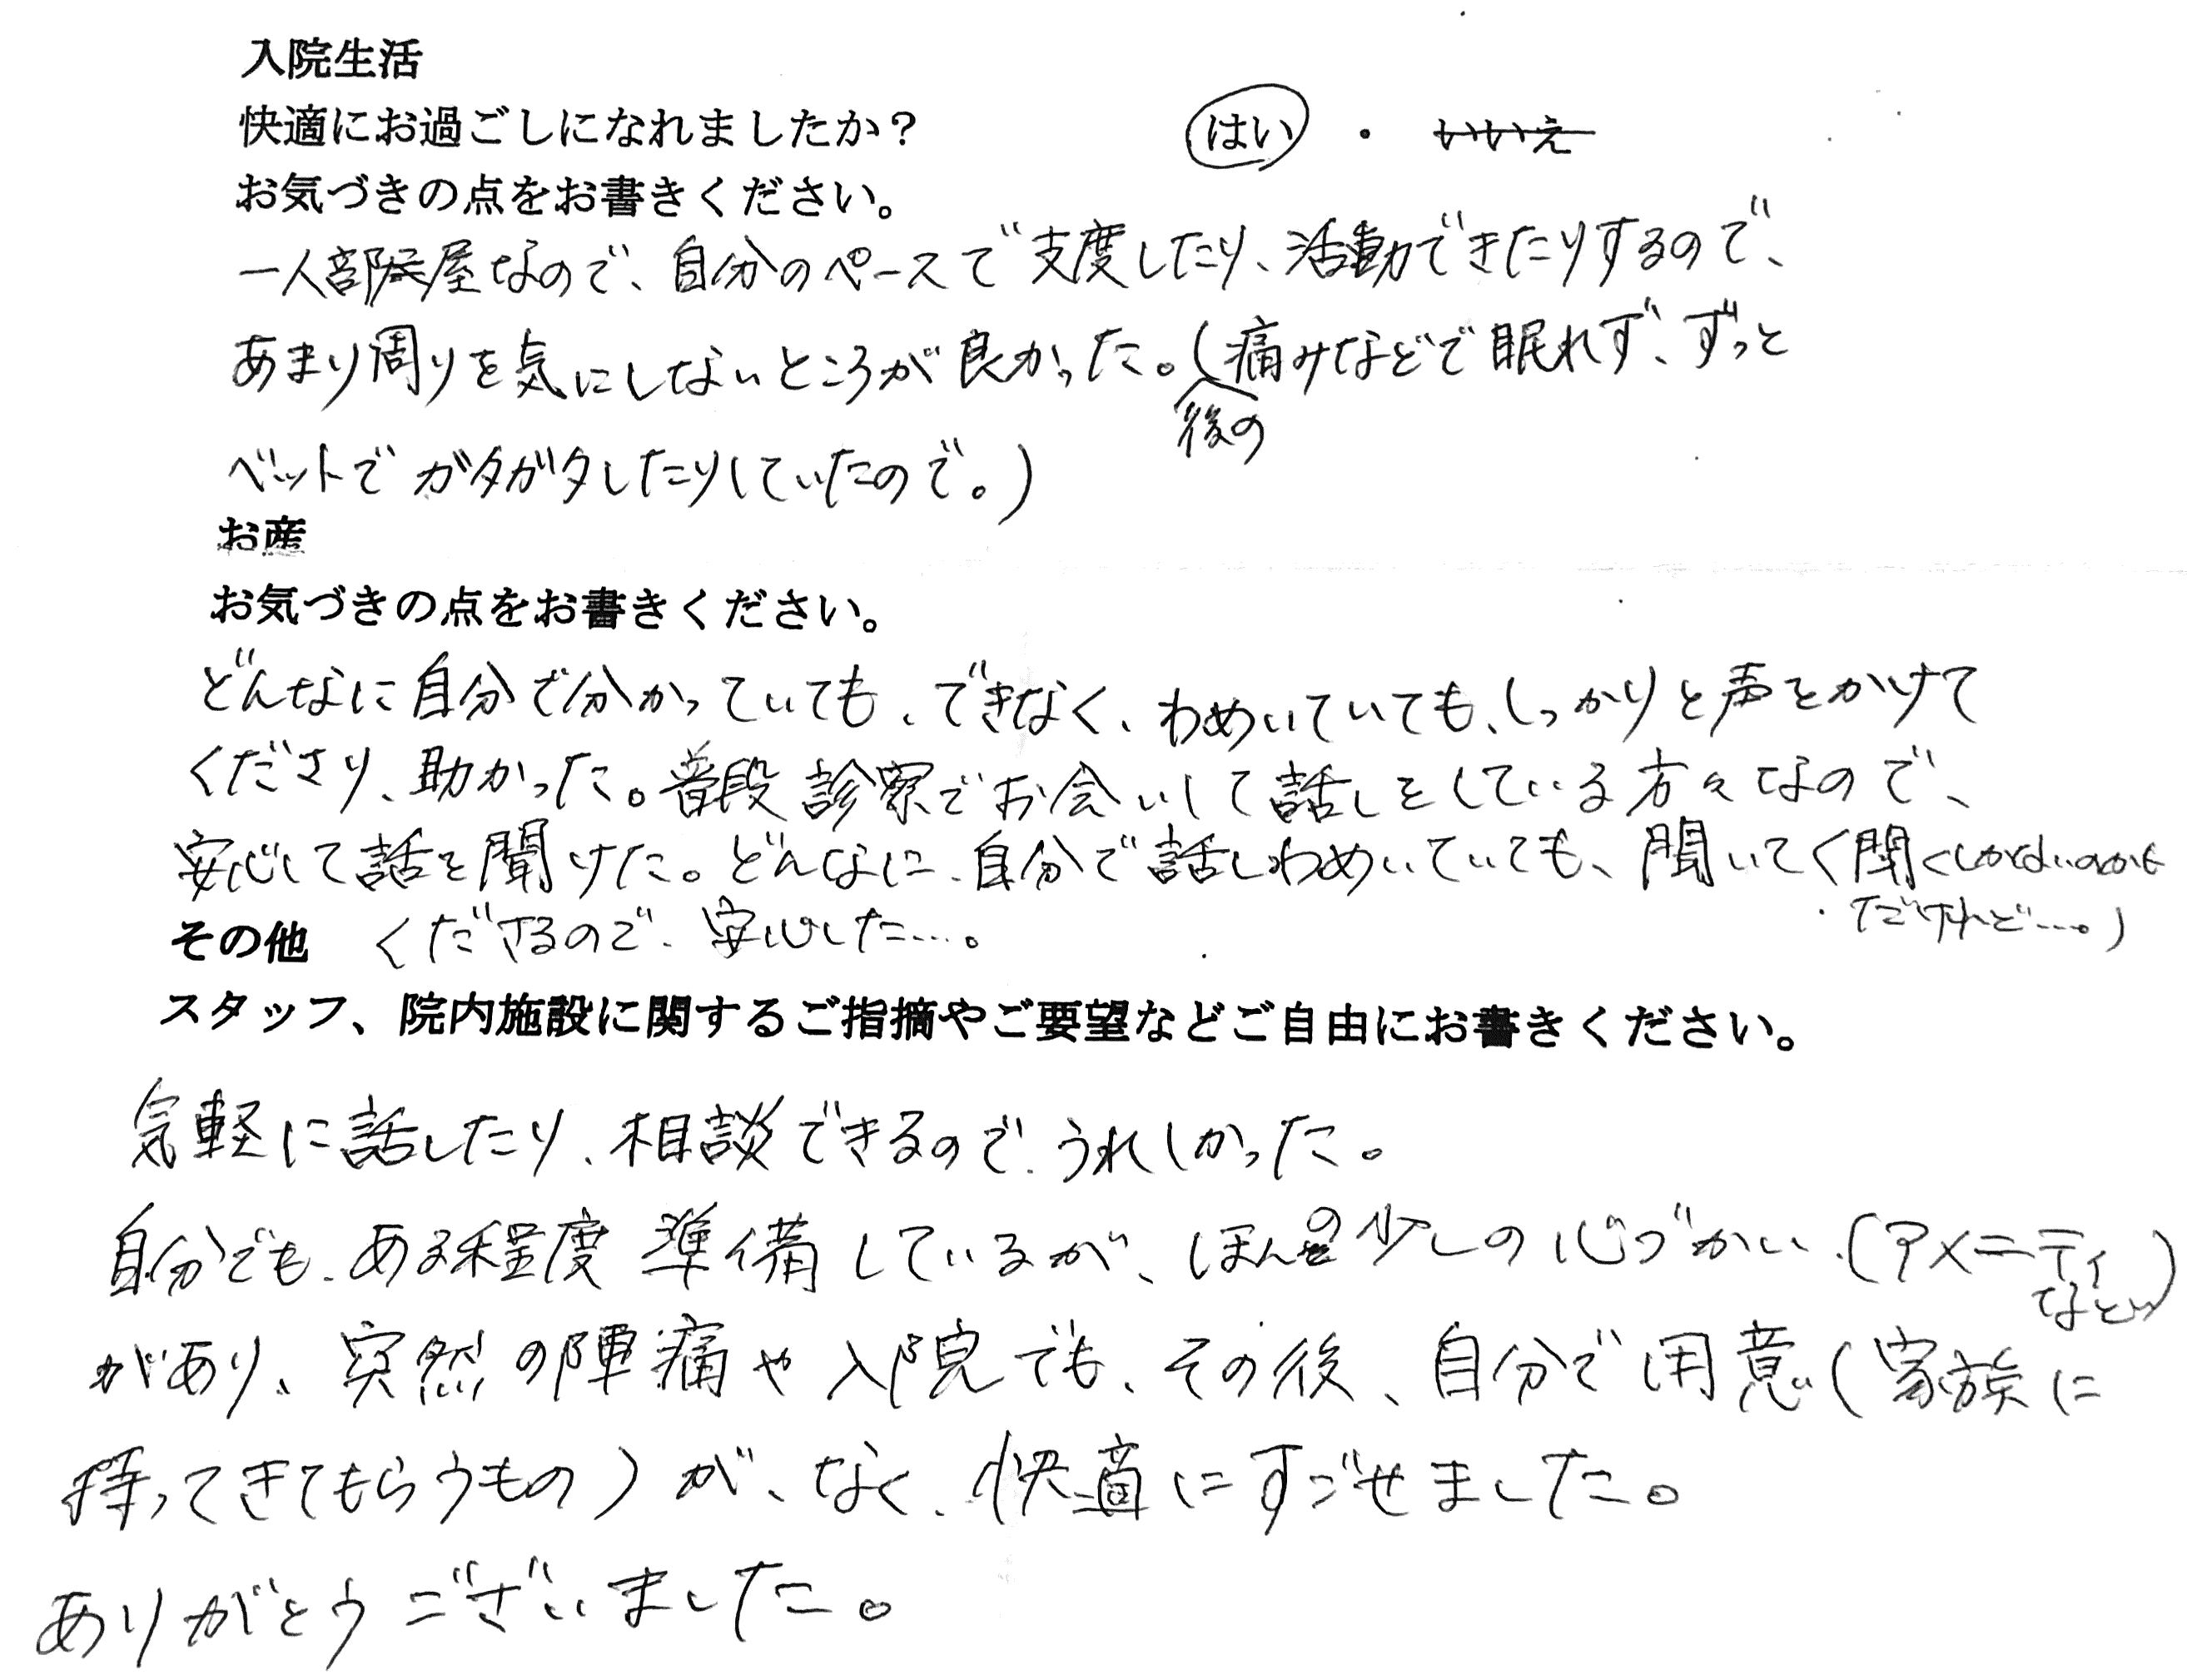 入院生活
快適にお過ごしになれましたか？ はい ・ いいえ
お気づきの点をお書きください。
一人部屋なので、自分のペースで支度したり、活動できたりするので、
あまり周りを気にしないところが良かった。(後の痛みなどで眠れず、ずっと
ベットでガタガタしたりしていたので。)
お産
お気づきの点をお書きください。
どんなに自分で分かっていても、できなく、わめいていても、しっかりと声をかけて
くださり、助かった。普段診察でお会いして話しをしている方々なので、
安心して話を聞けた。どんなに、自分で話しわめいていても、聞いてく(聞くしかないのかも
だけれど…。)
くださるので、安心した…。
その他
スタッフ、院内施設に関するご指摘やご要望などご自由にお書きください。
気軽に話したり、相談できるので、うれしかった。
自分でも、ある程度準備しているが、ほんの少しの心づかい、(アメニティなど)
があり、突然の陣痛や入院でも、その後、自分で用意(家族に
持ってきてもらうもの)が、なく、快適にすごせました。
ありがとうございました。